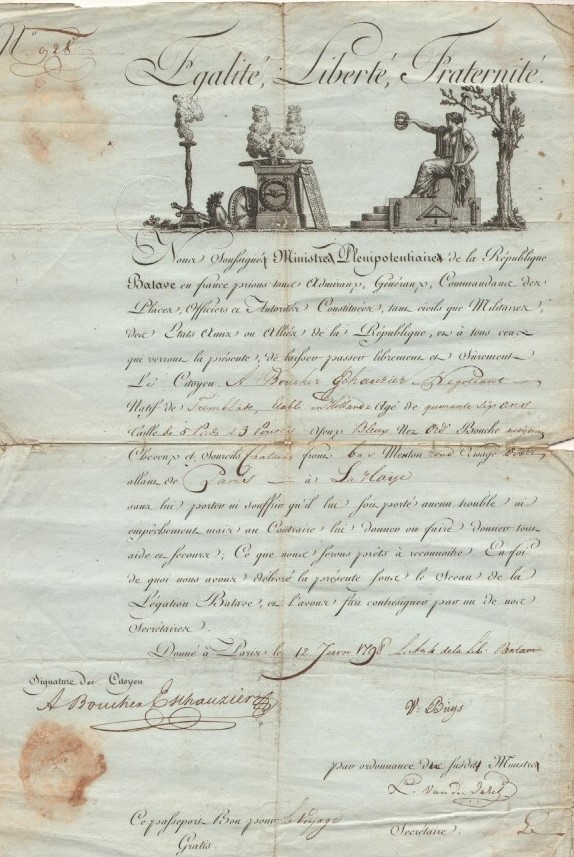 N.º 928
Egalité, Liberté, Fraternité.
Nous Soussignés Ministres Plenipotentiaires de la République
Batave en france prions tous Admiraux, Généraux, Commandans des
Places, Officiers et Autorités Constituées, tant civils que Militaires,
des Etats Amis ou Alliés de la République, et à tous ceux
qui verront la présente, de laisser passer librement et Sûrement
Le Citoyen A Boucher Eschauzier Negotiant
Natif de établi en Hollande Agé de quarante Six ans
taille de 5 Pieds 3 Pouces Yeux Bleux Nez Ord Bouche moyenne
Cheveux et Sourcils Chatains front bas Menton rond Visage Ovale
allant de Paris à La Haye
sans lui porter ni souffrir qu'il lui soit porté aucun trouble ni
empêchement mais au Contraire lui donner ou faire donner tout
aide et sécours; Ce que nous serons prêts à reconnoitre En foi
de quoi nous avons délivré la présente sous le Sceau de la
Légation Batave, et l'avons fait contresigner par un de nos
Secrétaires.
Donné à Paris le 12 Juin 1798 de la Lib. Batave
Signature du Citoyen
A Boucher Eschauzier
V. Buys
par ordonnance du susdit Ministre
L. van der
Ce passeport Bon pour le Voyage
Secrétaire.
Gratis.